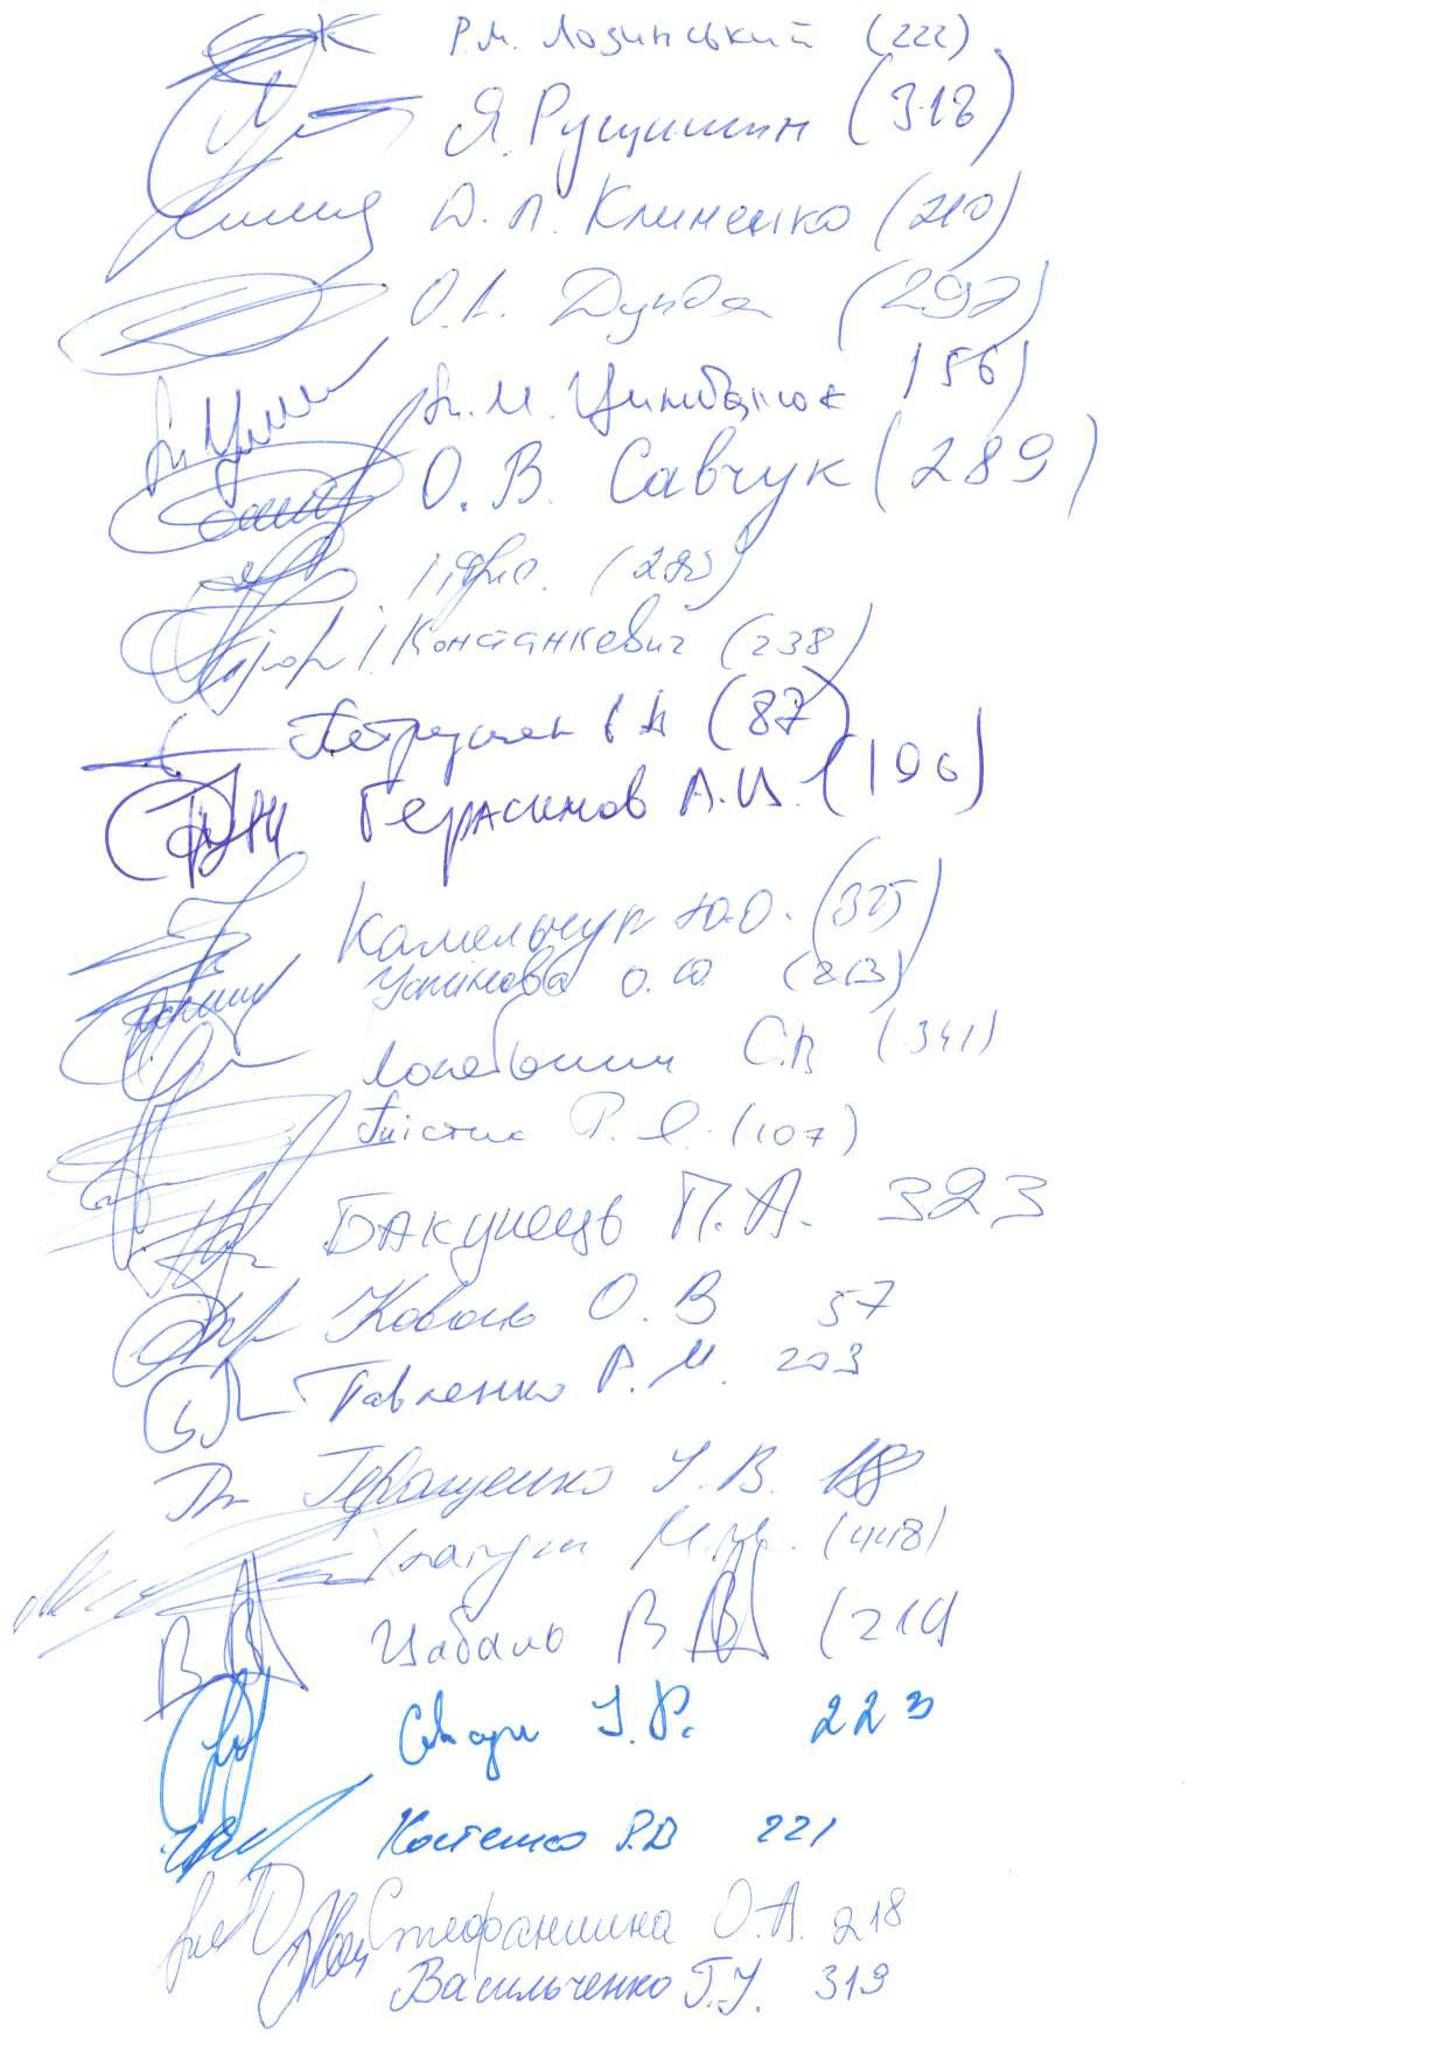 Р.М. Лозинський (222)
Я. Рущишин (318)
Д. Л. Клименко (210)
О.І. Дунда (297)
М. Цимбалюк (56)
О. В. Савчук (289)
І. Фріс. (290)
І. Констанкевич (238)
(87)
Герасимов А.В. (196)
Камельчук Ю.О. (325)
Устінова О.Ю (213)
Лопушанський (341)
Лістик (107)
БАКУНЕЦЬ П.А. 323
Коваль О. В 57
Павленко Р. М. 203
Геращенко І. В. 188
М.М. (448)
Цабаль В В (219)
Совсун І.Р. 223
Костенко Р.В 221
Стефанишина О.А. 218
Васильченко Г.І. 319